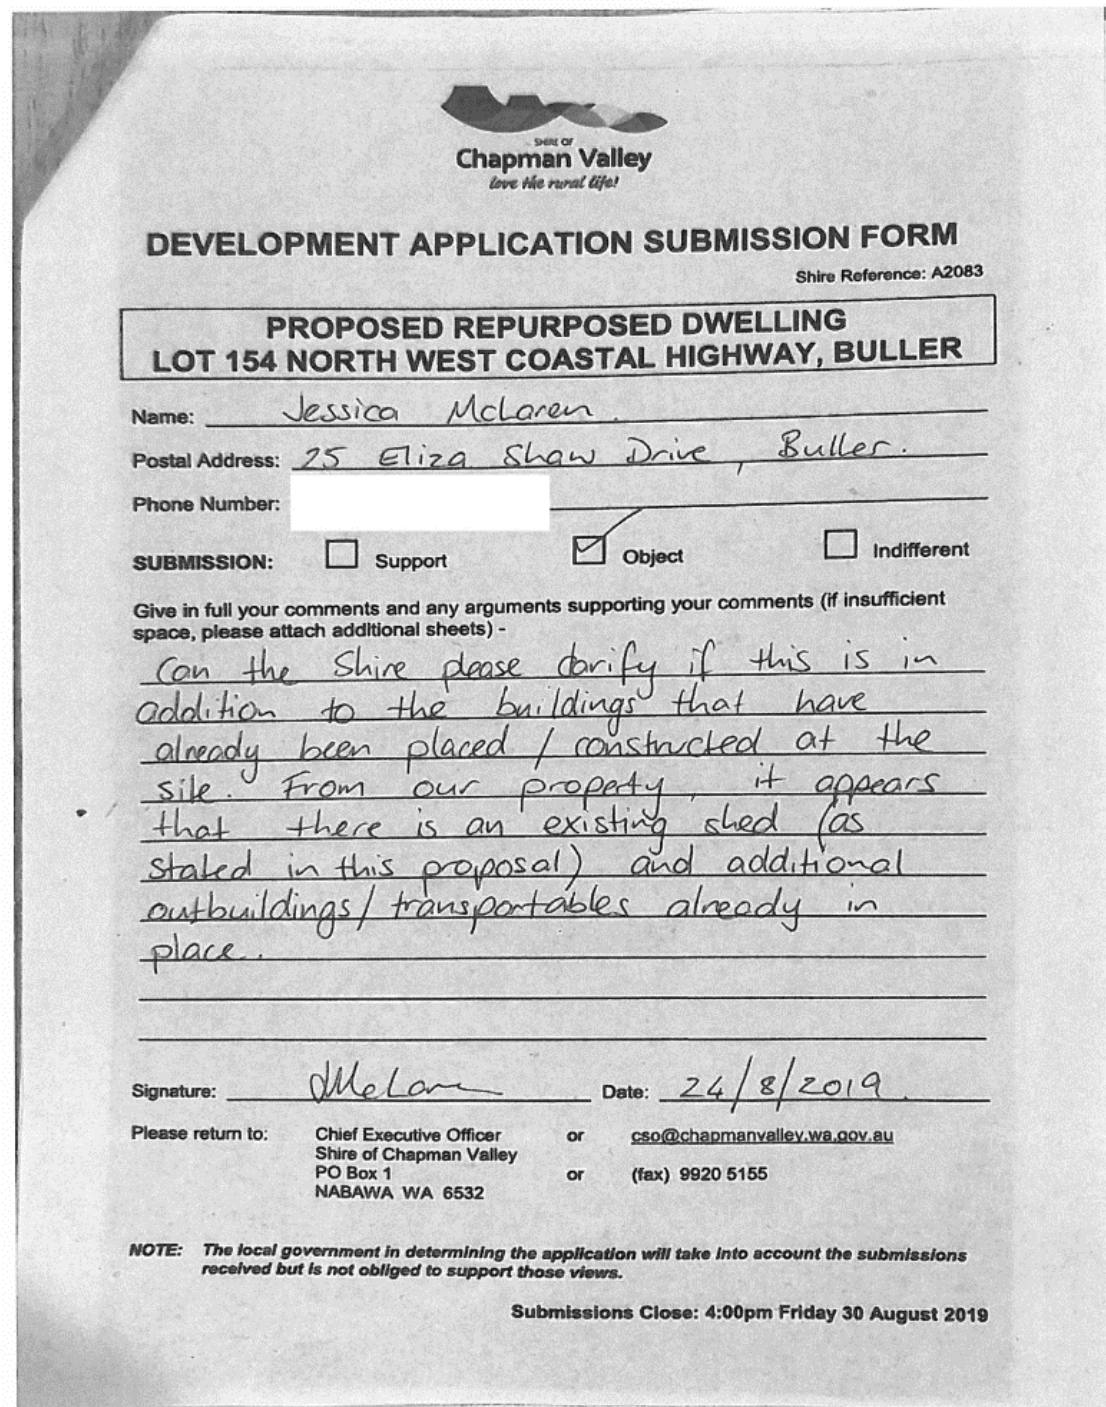 SHIRE OF
Chapman Valley
love the rural life!
DEVELOPMENT APPLICATION SUBMISSION FORM
Shire Reference: A2083
PROPOSED REPURPOSED DWELLING
LOT 154 NORTH WEST COASTAL HIGHWAY, BULLER
Name: Jessica McLaren.
Postal Address: 25 Eliza Shaw Drive, Buller.
Phone Number:
SUBMISSION: Support Object Indifferent
Give in full your comments and any arguments supporting your comments (if insufficient
space, please attach additional sheets) -
Can the Shire please clarify if this is in
addition to the buildings that have
already been placed / constructed at the
site. From our property, it appears
that there is an existing shed (as
stated in this proposal) and additional
outbuildings/ transportables already in
place.
Signature: Date: 24/8/2019.
Please return to: Chief Executive Officer or cso@chapmanvalley.wa.gov.au
Shire of Chapman Valley
PO Box 1 or (fax) 9920 5155
NABAWA WA 6532
NOTE: The local government in determining the application will take into account the submissions
received but is not obliged to support those views.
Submissions Close: 4:00pm Friday 30 August 2019